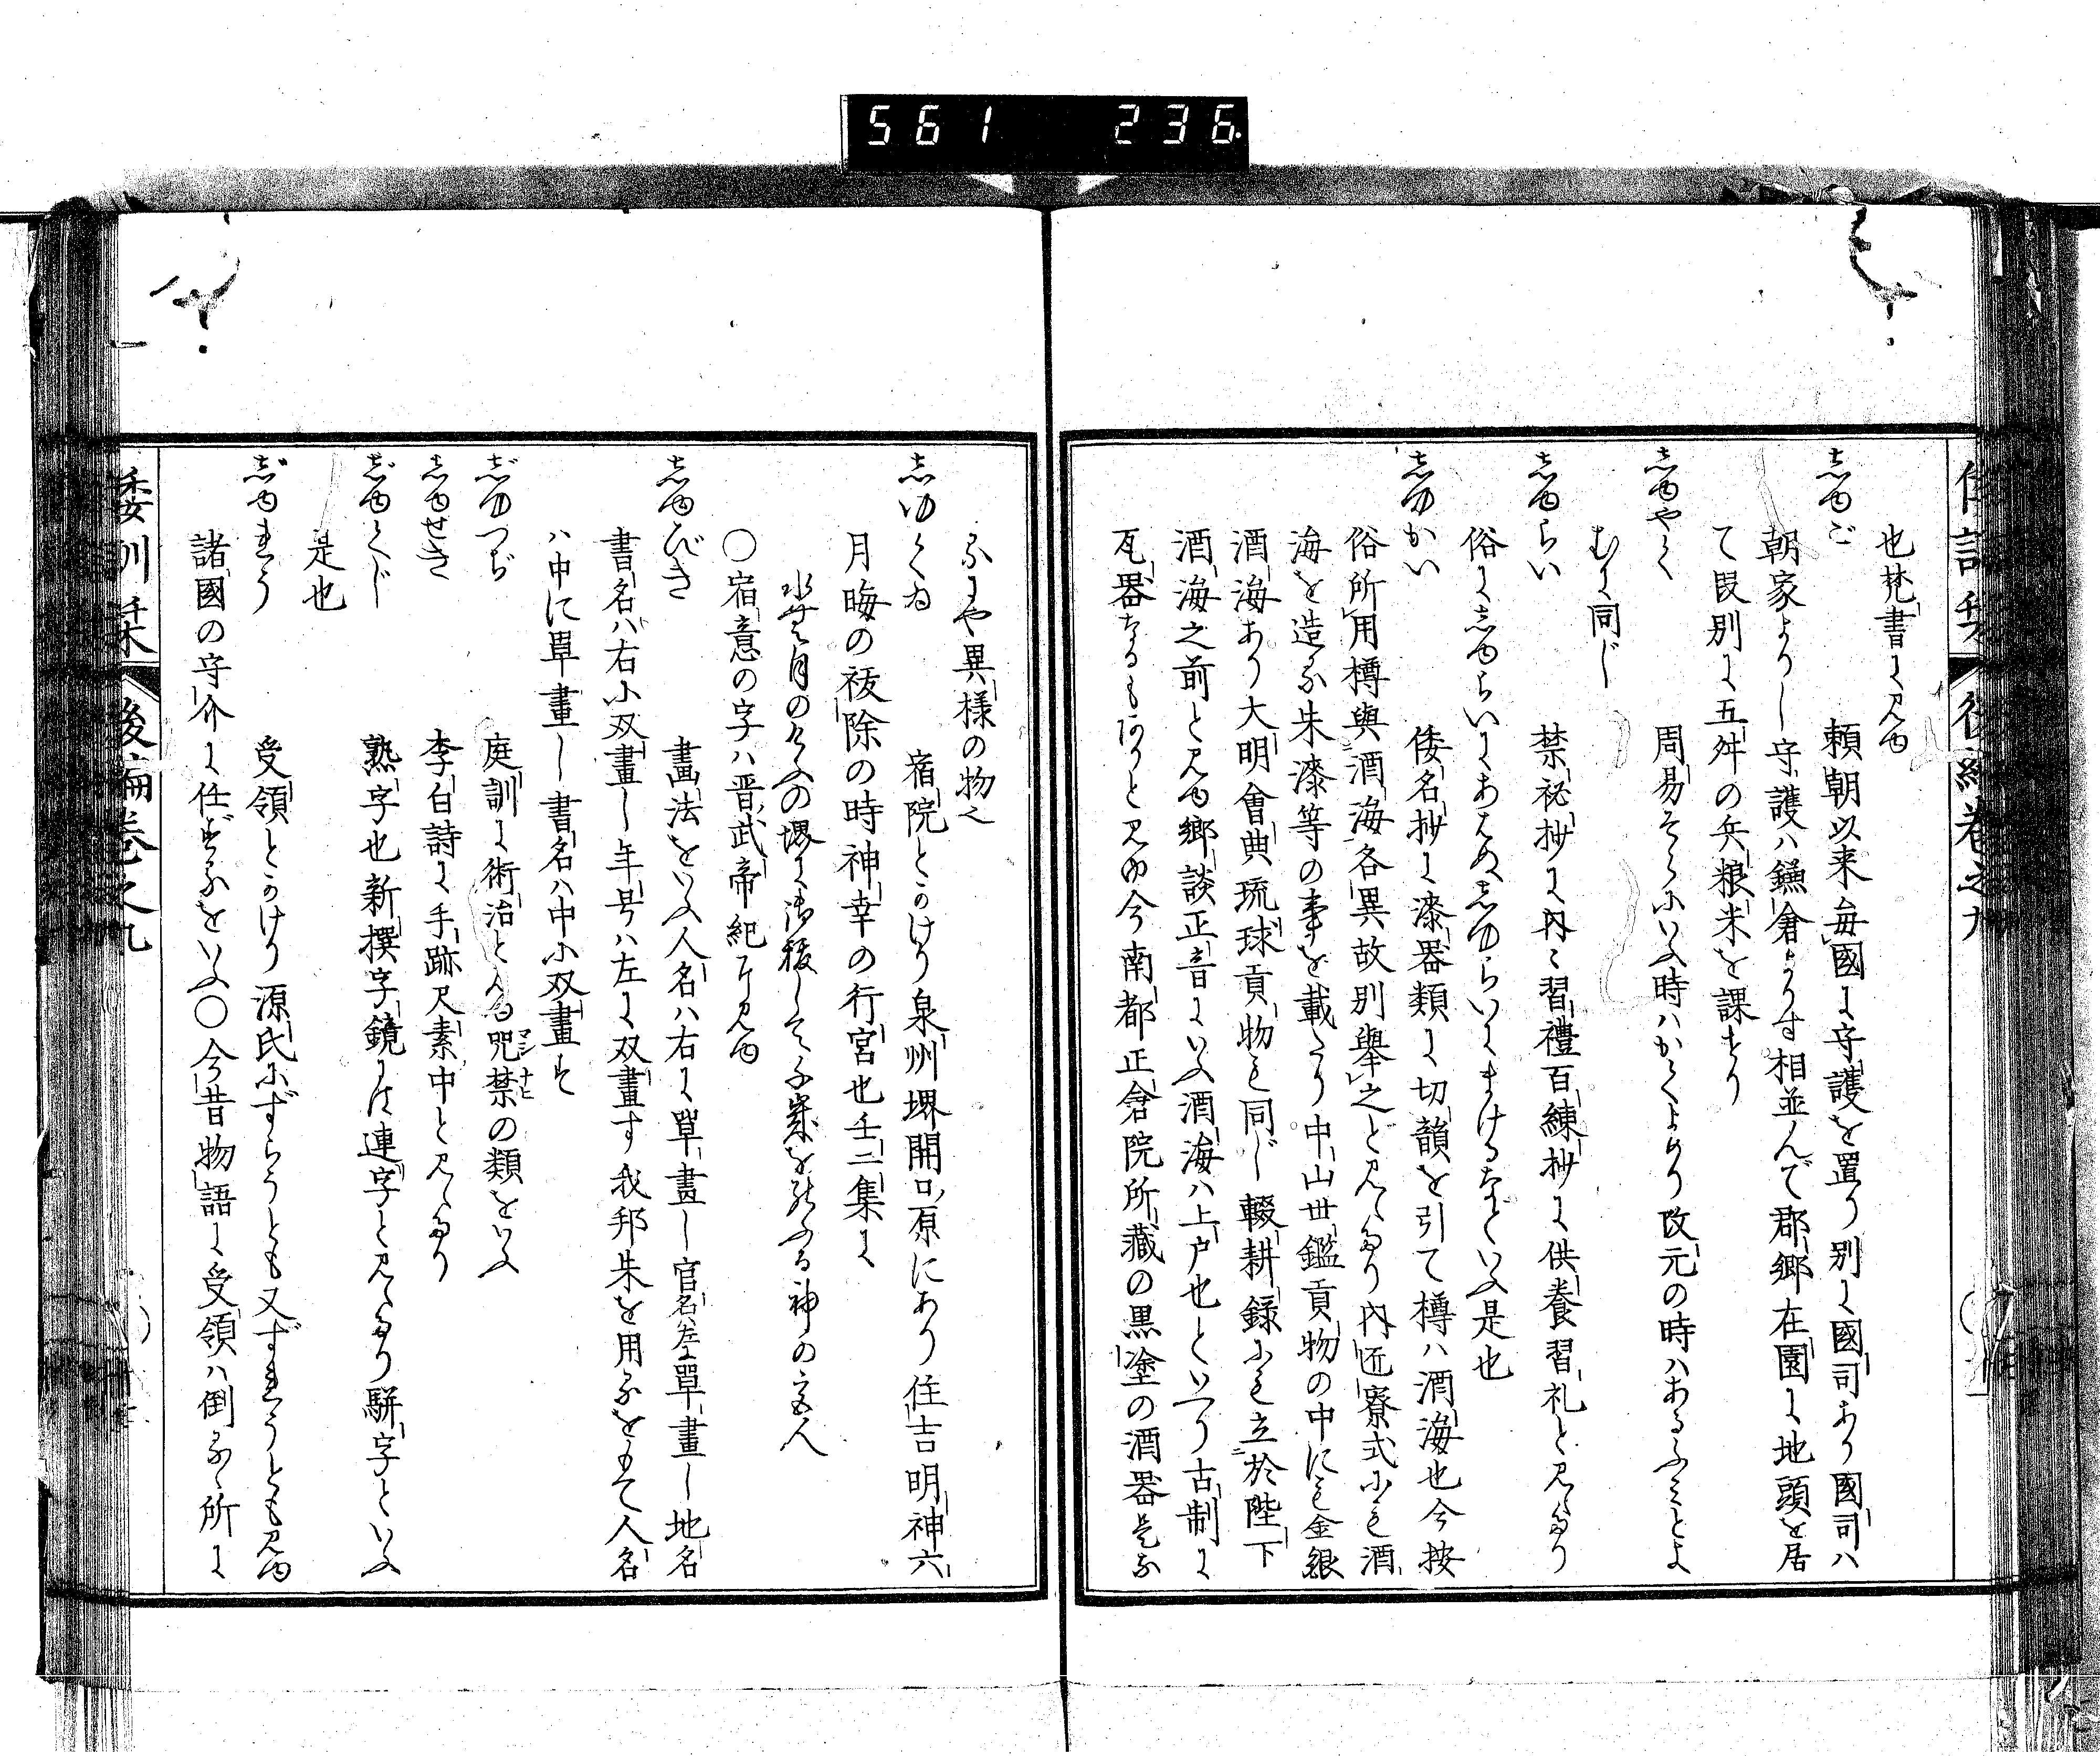 561 236
倭訓栞 後編卷之九
也梵書に見ゆ
志ゆご 頼朝以来毎國に守護を置り別に國司あり國司ハ
朝家よりし守護ハ鎌倉よりす相並んで郡郷在園に地頭を居
て段別に五舛の兵粮米を課せり
志ゆやく 周易そらにいふ時ハかくよめり改元の時ハあるふミとよ
むに同じ
志ゆらい 禁秘抄に内々習禮百練抄に供養習礼と見えたり
俗に志ゆらいにあはぬ志ゆらいにまけるなどいふ是也
志ゆかい 倭名抄に漆器類に切韻を引て樽ハ酒海也今按
俗所用樽與酒海各異故別舉之と見えたり内匠寮式にも酒
海を造る朱漆等の事を載たり中山世鑑貢物の中にも金銀
酒海あり大明會典琉球貢物も同じ輟耕録にも立於陛下
酒海之前と見ゆ郷談正音にいふ酒海ハ上戸也といへり古制に
瓦器なるもありと見ゆ今南都正倉院所藏の黒塗の酒器是な
るにや異様の物之
志ゆくゐ 宿院とかけり泉州堺開口原にあり住吉明神六
月晦の祓除の時神幸の行宮也壬二集に
水無月のけふの堺に御祓して千歳を祈るる神の宮人
〇宿意の字ハ晋武帝紀に見ゆ
志ゆびき 畫法をいふ人名ハ右に單畫し官名ハ左に單畫し地名
書名ハ右に双畫し年号ハ左に双畫す我邦朱を用るをもて人名
ハ中に單畫し書名ハ中に双畫す
志゛ゆつぢ 庭訓に術治と見ゆ呪禁マジナヒの類をいふ
志ゆせき 李白詩に手跡尺素中と見えたり
志゛ゆくじ 熟字也新撰字鏡には連字と見えたり駢字といふ
是也
志゛ゆれう 受領とかけり源氏にずらうとも又ずれうとも見ゆ
諸國の守介に任ずるをいふ〇今昔物語に受領ハ倒るゝ所に
倭訓栞 後編卷之九